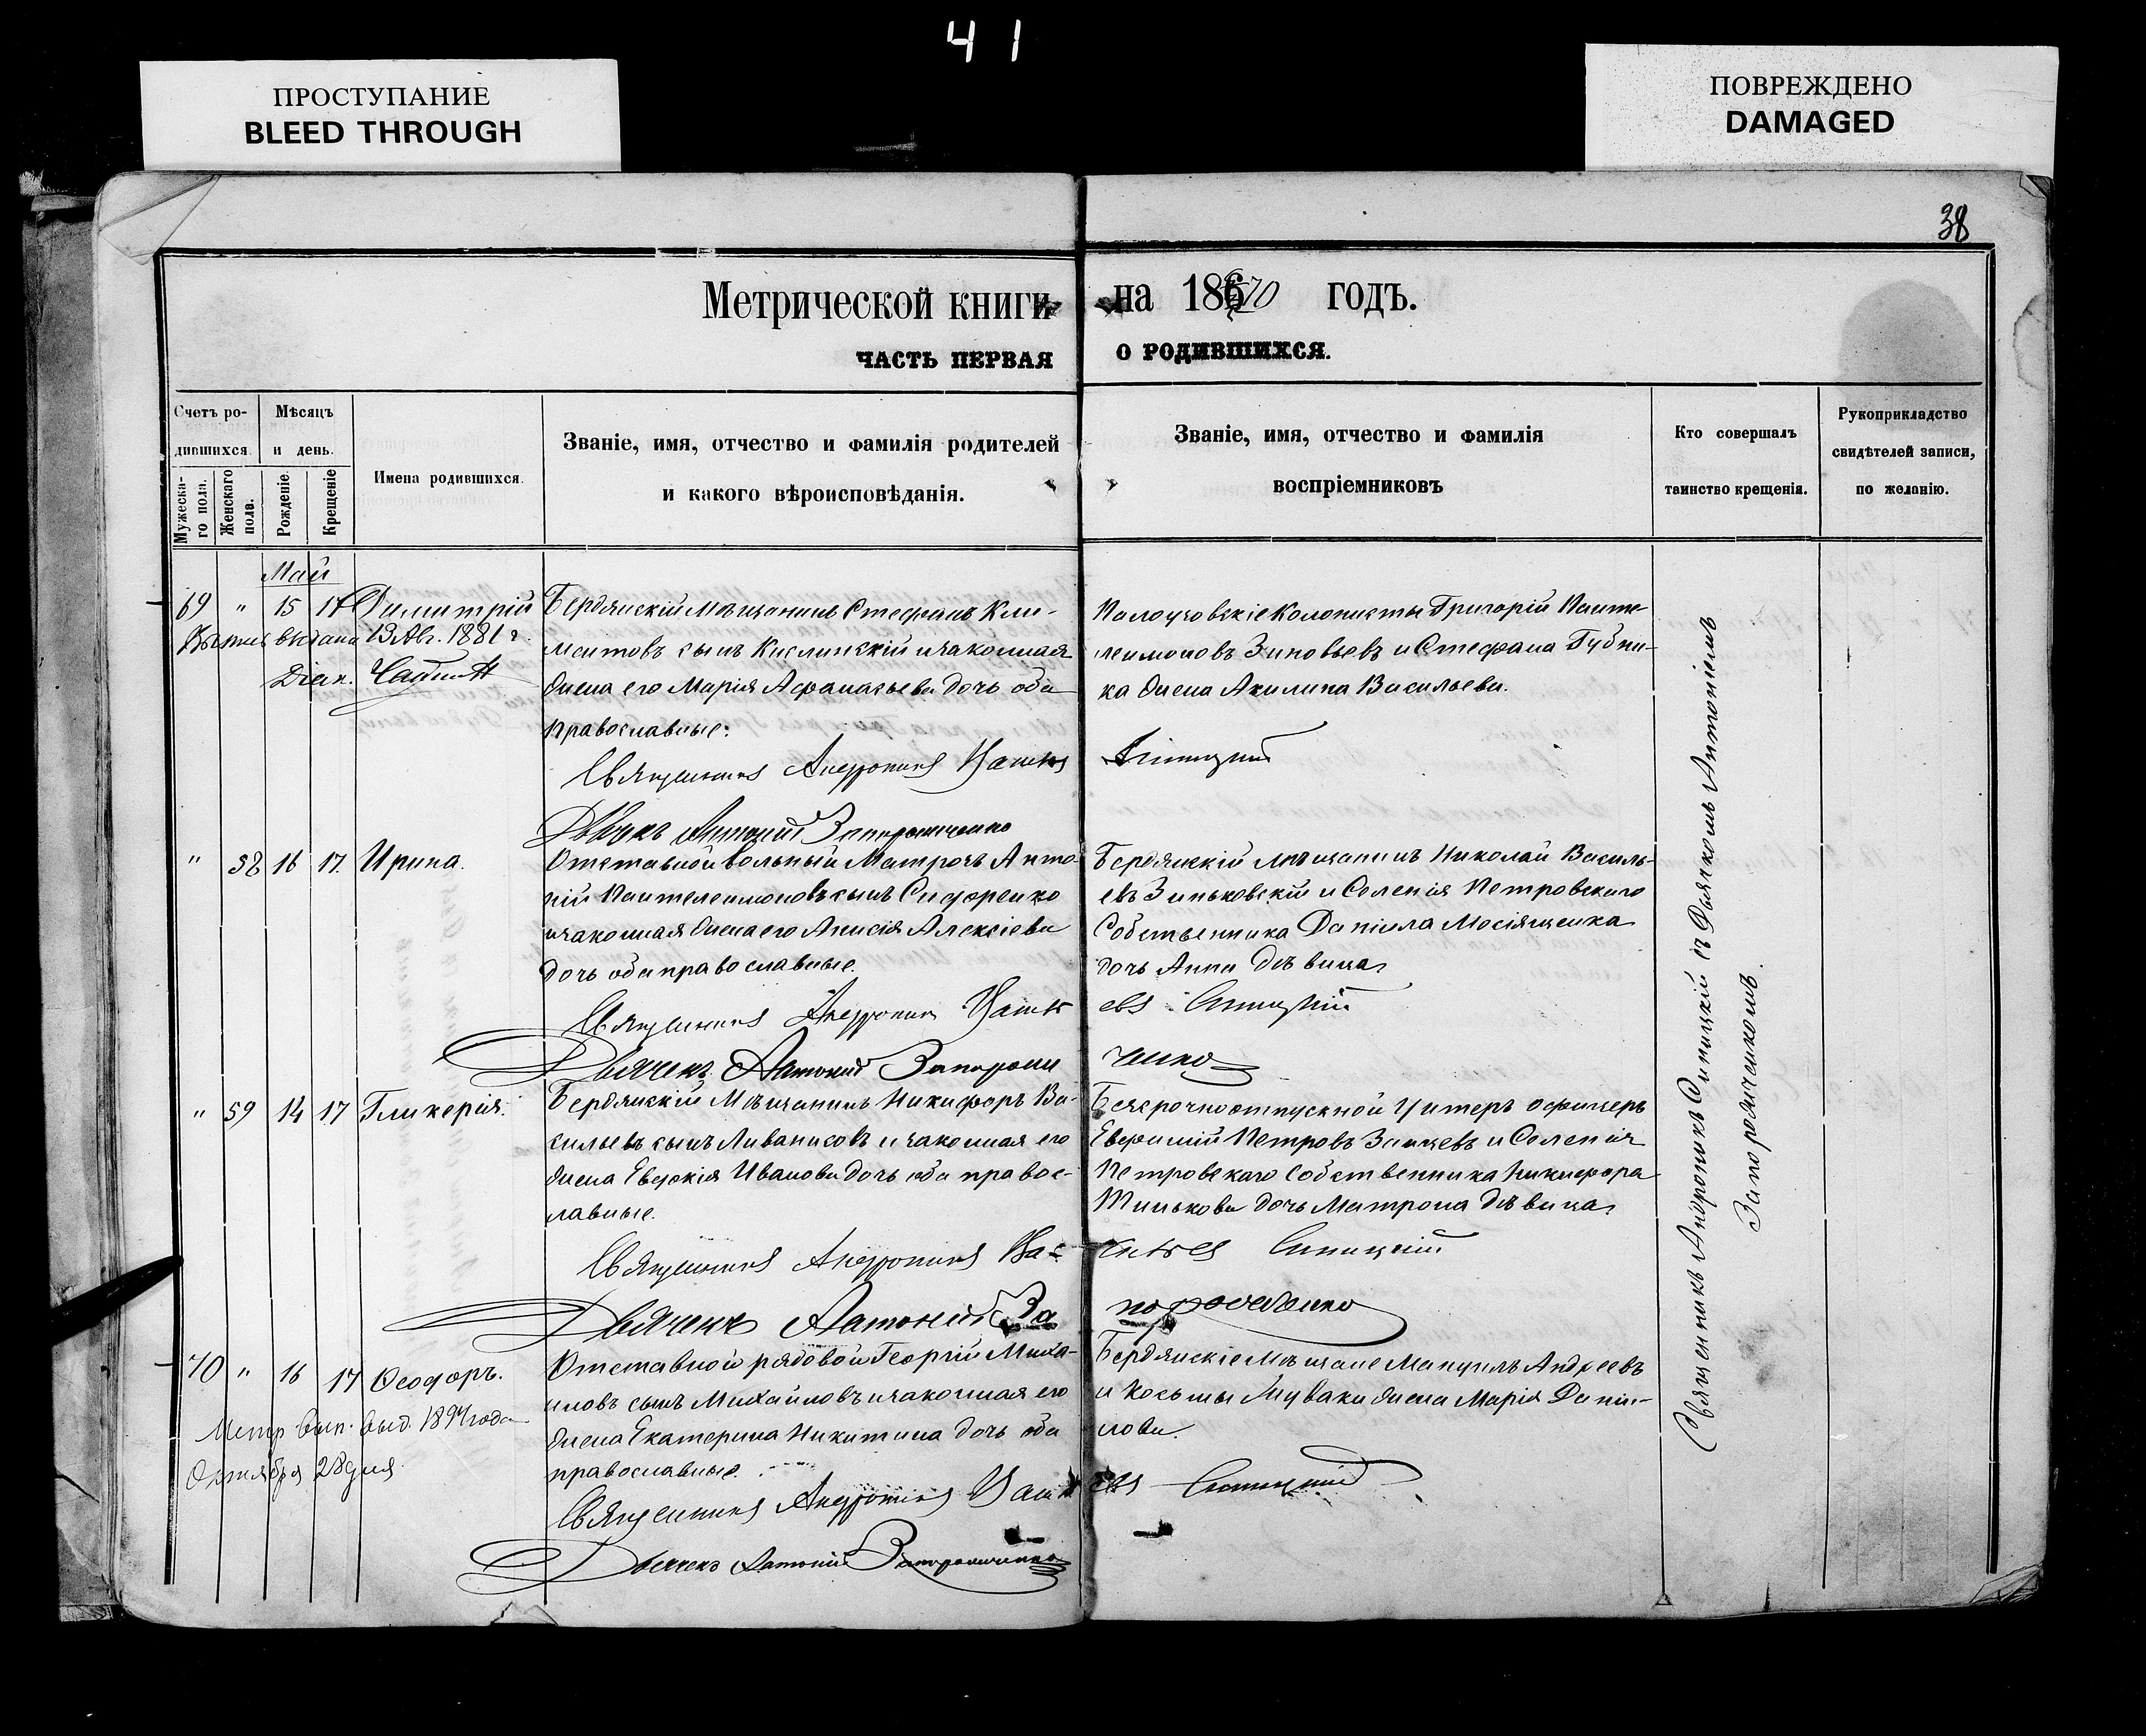 41
ПРОСТУПАНИЕ
BLEED THROUGH
ПОВРЕЖДЕНО
DAMAGED
38
Метрической книги на 1870 годъ.
ЧАСТЬ ПЕРВАЯ О РОДИВШИХСЯ.
Счетъ родившихся.
Мужеска-го пола.
Женскаго пола.
Мѣсяцъ и день.
Рожденіе.
Крещеніе
Имена родившихся.
Званіе, имя, отчество и фамилія родителей
и какого вѣроисповѣданія.
Званіе, имя, отчество и фамилія
воспріемниковъ
Кто совершалъ
таинство крещенія.
Рукоприкладство
свидѣтелей записи,
по желанію.
Май
69 " 15 17 Димитрій
выдана 13 Авг. 1881 г.
Діак.
Бердянскій Мѣщанинъ Стефанъ Кли-
ментовъ сынъ Кислинскій и законная
жена его Марія Афанасьева дочь оба
православные.
Священникъ Андроникъ Синицкій
Дьячекъ Антоній Запорошченко
Григорій Панте-
леимоновъ Зиновьевъ и Стефана Губни-
ка жена Акилина Васильева.
" 58 16 17. Ирина.
Отставной вольный Матрозъ Анто-
ній Пантелеимоновъ сынъ Сидоренко
и законная жена его Анисія Алексіева
дочь оба православные.
Священникъ Андроникъ Синицкій
Дьячекъ Антоній Запорошченко
Бердянскій мѣщанинъ Николай Василь-
евъ Зиньковскій и Селенія Петровскаго
Собственника Даніила Мосіященка
дочь Анна дѣвица.
" 59 14 17 Гликерія.
Бердянскій Мѣщанинъ Никифоръ Ва-
сильевъ сынъ Ливанисовъ и законная его
жена Евдокія Иванова дочь оба правос-
лавные.
Священникъ Андроникъ Синицкій
Дьячекъ Антоній Запорошченко
Безсрочноотпускной Унтеръ офицеръ
Евфимій Петровъ Зайцевъ и Селенія
Петровскаго Собственника Никифора
дочь Матрона дѣвица.
70 " 16 17 Ѳеодоръ.
Метр. вып. выд. 1897 года
Октября 28 дня.
Отставной рядовой Георгій Миха-
иловъ сынъ Михайловъ и законная его
жена Екатерина Никитина дочь оба
православные.
Священникъ Андроникъ Синицкій
Дьячекъ Антоній Запорошченко
Бердянскіе Мѣщане Мануилъ Андреевъ
и Косьмы жена Марія Дани-
лова.
Священникъ Андроникъ Синицкій съ Дьякомъ Антоніемъ
Запорошченкомъ.